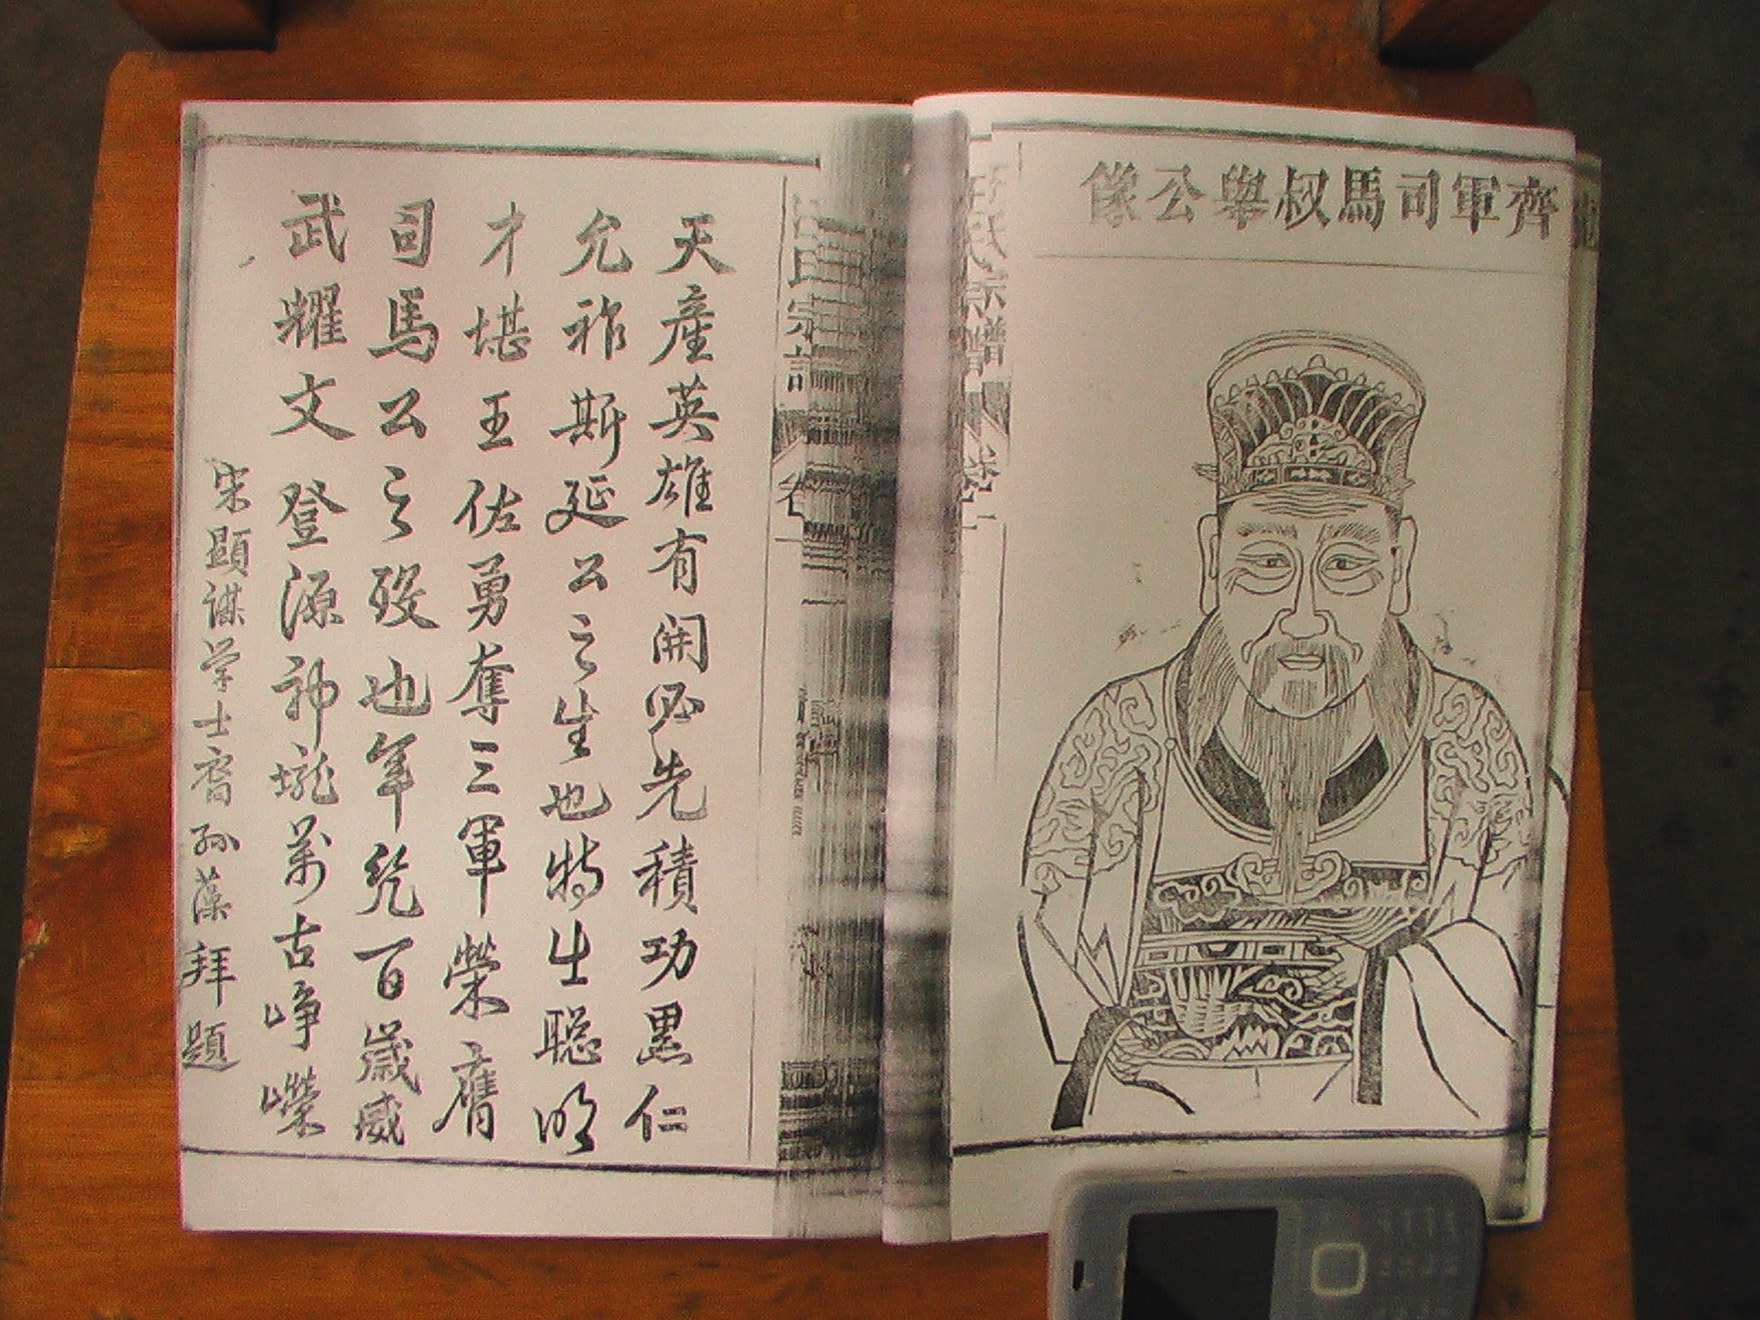 齊軍司馬叔舉公像
汪氏宗譜
天產英雄有開必先積功累仁
允祚斯延公之生也特生聰明
才堪王佐勇奪三軍榮膺
司馬公之歿也年終百歲威
武耀文登源神壠萬古崢嶸
宋顯謨學士裔孫藻拜題